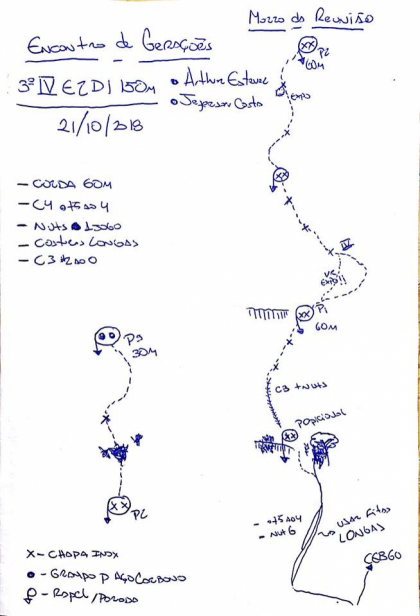 Morro da Reunião
Encontro de Gerações
3º IV E2 D1 150m
21/10/2018
• Arthur Estevez
• Jeferson Costa
P2
60m
EXPO
- CORDA 60M
- C4
- NUTS
- COSTURAS LONGAS
- C3 #2 ao 0
IV
V E2
EXPO!!
P1
60M
P3
30M
C3 + NUTS
P opicional
P2
- NUT 6
USAR FITAS
LONGAS
CEB60
X - CHAPA INOX
• - GRAMPO P AÇO CARBONO
- RAPEL/PARADA